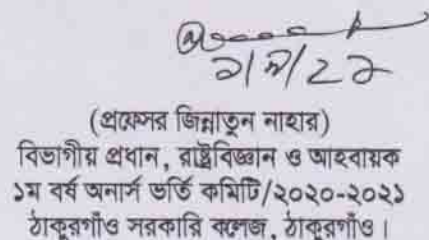 (প্রফেসর জিন্নাতুন নাহার)
বিভাগীয় প্রধান, রাষ্ট্রবিজ্ঞান ও আহবায়ক
১ম বর্ষ অনার্স ভর্তি কমিটি/২০২০-২০২১
ঠাকুরগাঁও সরকারি কলেজ, ঠাকুরগাঁও।